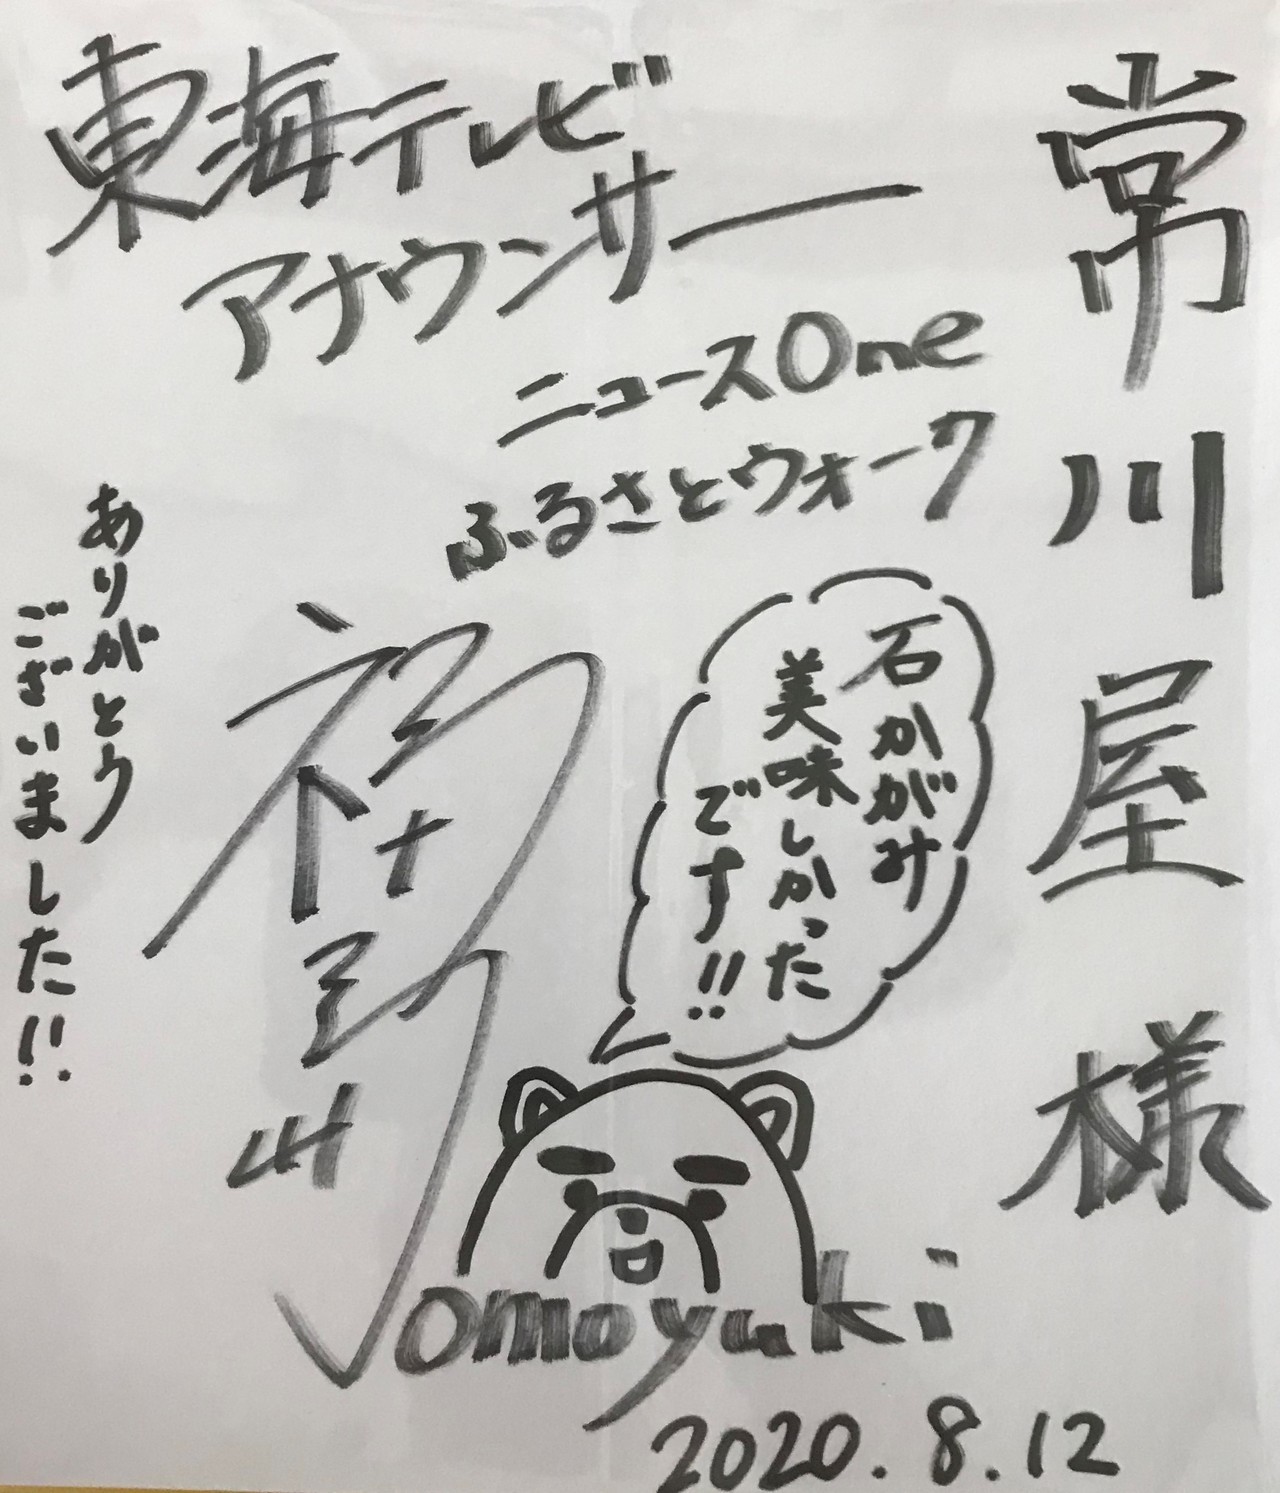 常川屋様
東海テレビ
アナウンサー
ニュースOne
ふるさとウォーク
石かがみ
美味しかった
です!!
ありがとう
ございました!!
omoyuki
2020.8.12